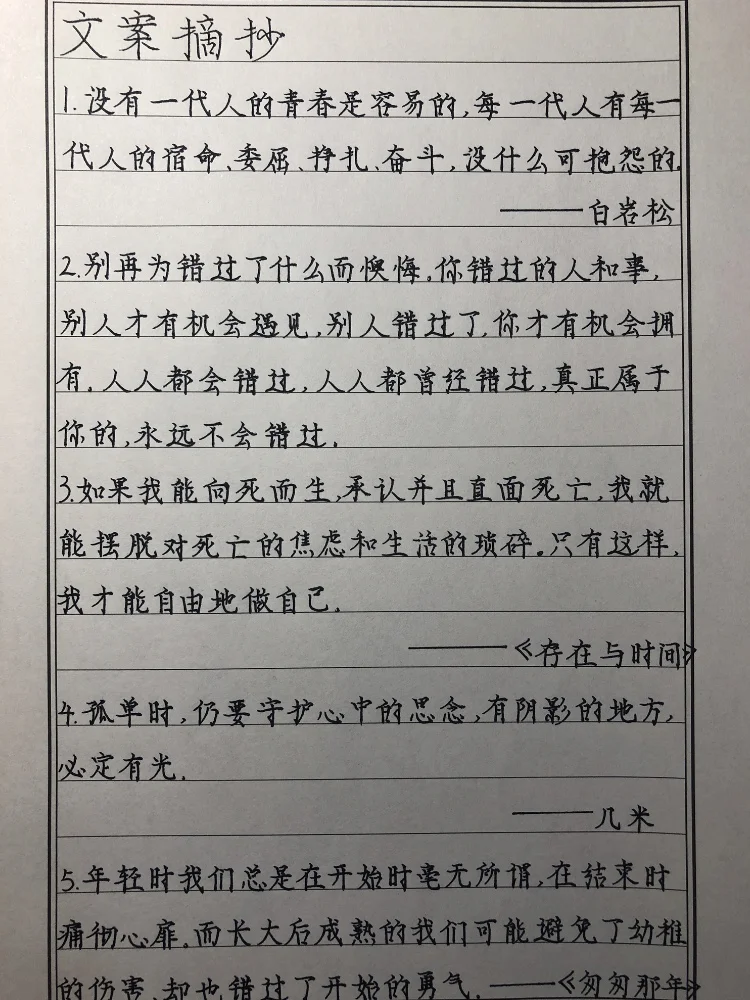 文案摘抄
1.没有一代人的青春是容易的,每一代人有每一
代人的宿命、委屈、挣扎、奋斗,没什么可抱怨的.
——白岩松
2.别再为错过了什么而懊悔.你错过的人和事,
别人才有机会遇见,别人错过了,你才有机会拥
有.人人都会错过,人人都曾经错过,真正属于
你的,永远不会错过.
3.如果我能向死而生,承认并且直面死亡,我就
能摆脱对死亡的焦虑和生活的琐碎.只有这样,
我才能自由地做自己.
——《存在与时间》
4.孤单时,仍要守护心中的思念,有阴影的地方,
必定有光.
——几米
5.年轻时我们总是在开始时毫无所谓,在结束时
痛彻心扉.而长大后成熟的我们可能避免了幼稚
的伤害,却也错过了开始的勇气.——《匆匆那年》